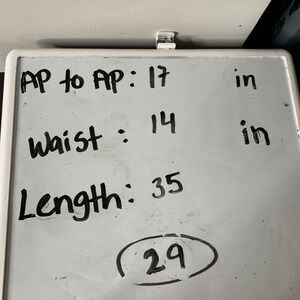 AP to AP: 17 in
Waist : 14 in
Length: 35
29